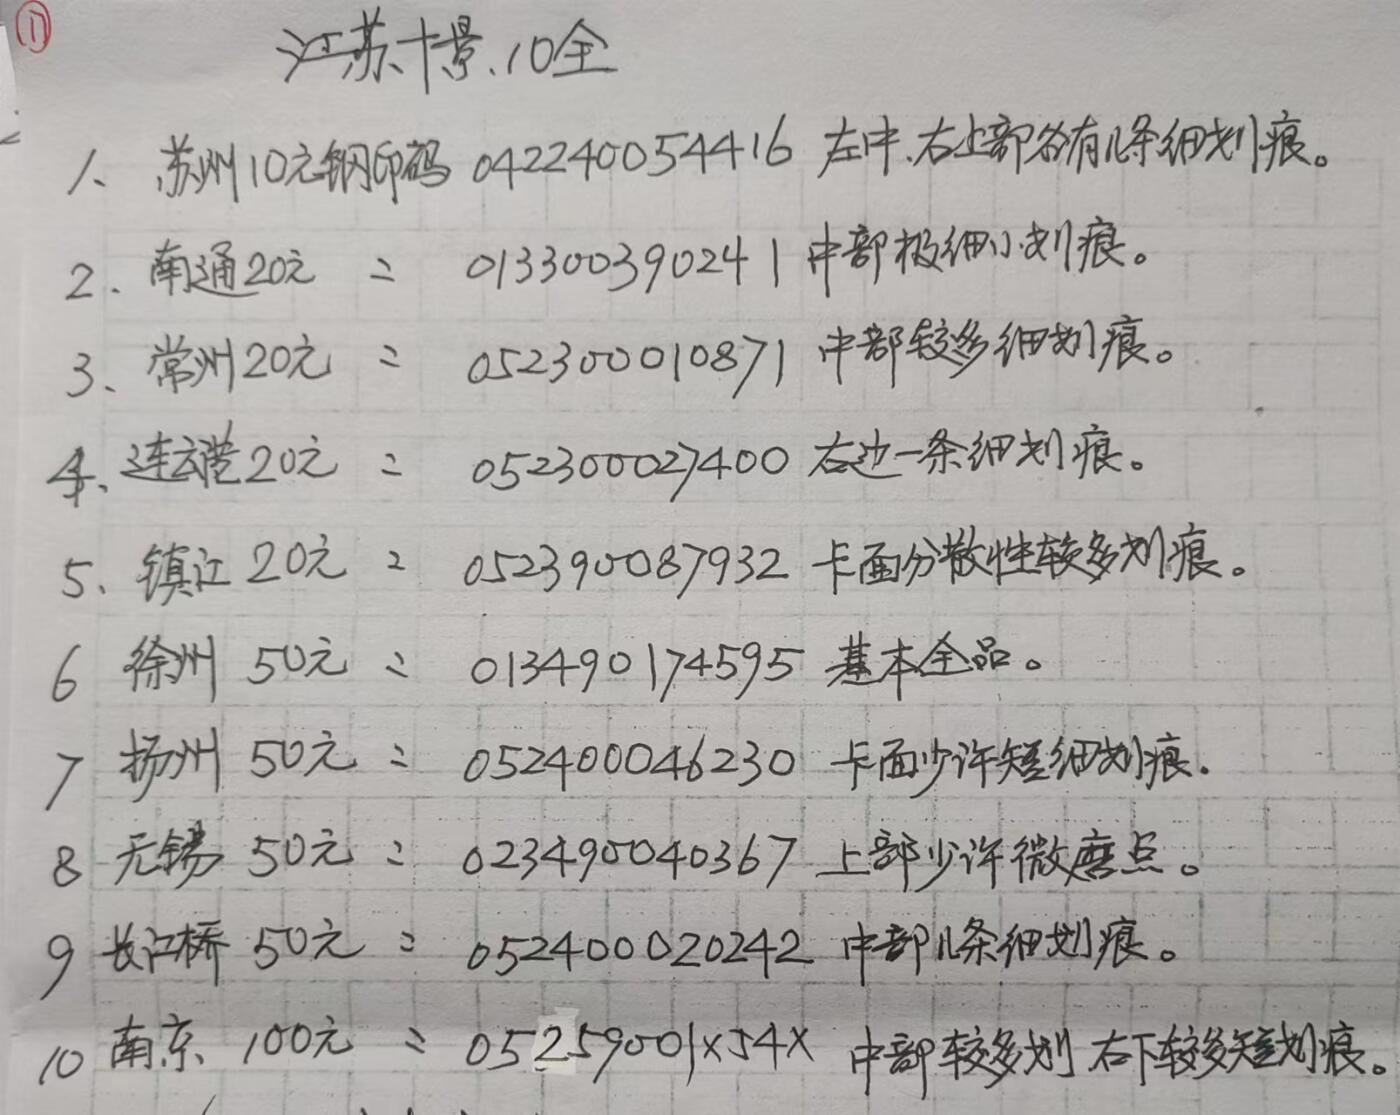 ①
江苏十景.10全
1、苏州10元钢印码 042240054416 左中、右上部各有几条细划痕。
2、南通20元 = 013300390241 中部极细小划痕。
3、常州20元 = 052300010871 中部较多细划痕。
4、连云港20元 = 052300027400 右边一条细划痕。
5、镇江20元 = 052390087932 卡面分散性较多划痕。
6 徐州 50元 = 013490174595 基本全品。
7 扬州 50元 = 052400046230 卡面少许短细划痕.
8 无锡 50元 = 023490040367 上部少许微磨点。
9 长江桥 50元 = 052400020242 中部几条细划痕。
10 南京、100元 = 05259001x54x 中部较多划 右下较多短划痕。